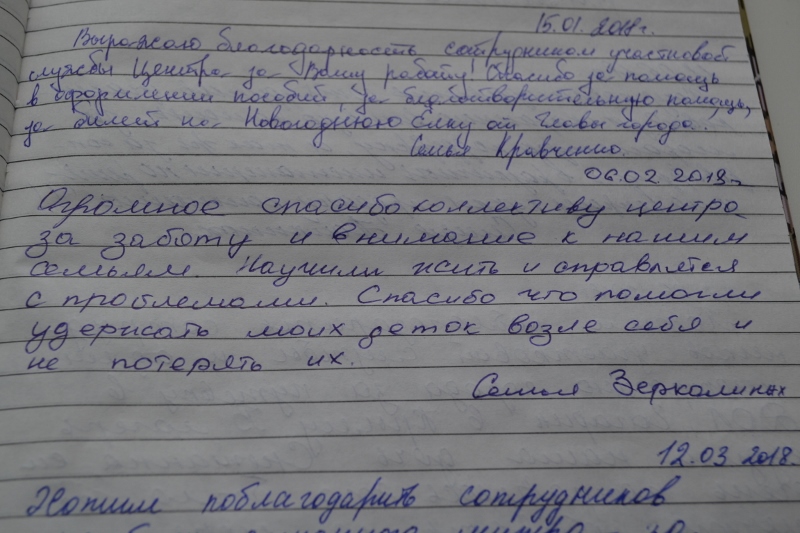 15.01.2018г.
Выражаю благодарность сотрудникам участковой
службы Центра за Вашу работу! Спасибо за помощь
в оформлении пособий, за благотворительную помощь,
за билет на Новогоднюю Ёлку от Главы города.
Семья Кравченко.
06.02.2018г.
Огромное спасибо коллективу центра
за заботу и внимание к нашим
семьям. Научили жить и справлятся
с проблемами. Спасибо что помогли
удержать моих деток возле себя и
не потерять их.
Семья Зеркалиных
12.03.2018.
Хотим поблагодарить сотрудников